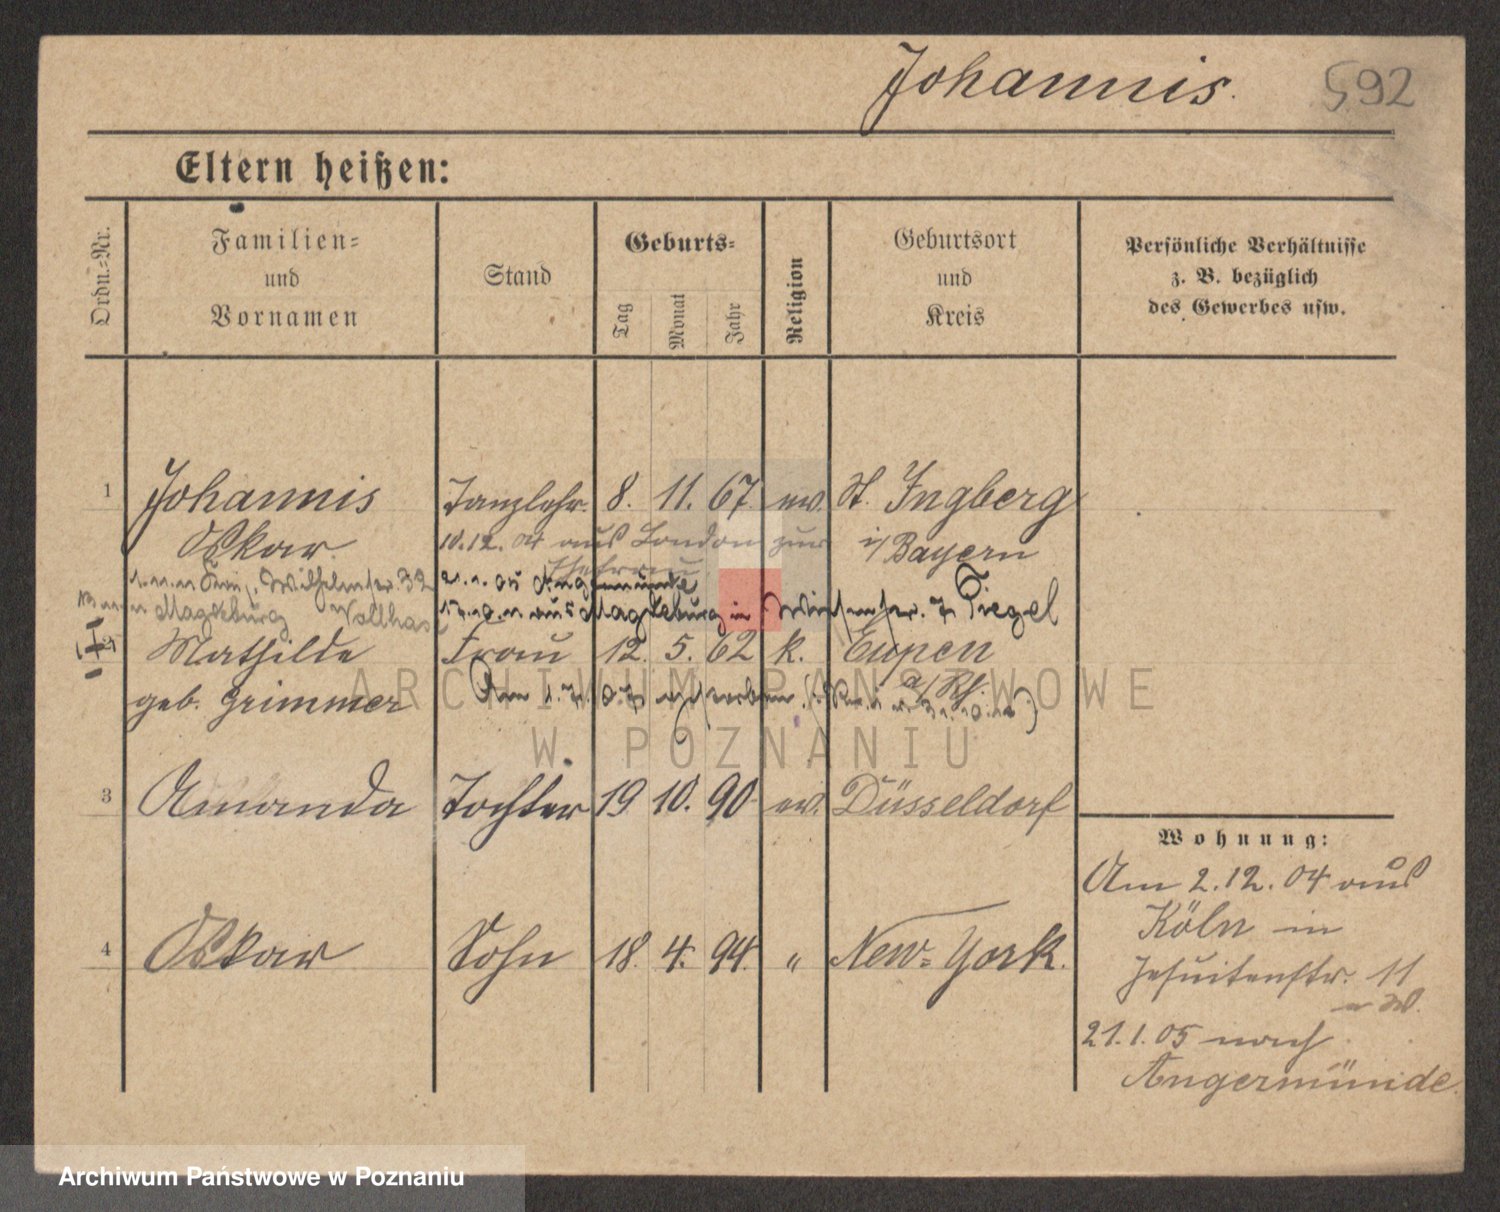 Johannis.
592
Eltern heißen:
Ordn.-Nr.
Familien-
und
Vornamen
Stand
Geburts-
Tag
Monat
Jahr
Religion
Geburtsort
und
Kreis
Persönliche Verhältnisse
z. B. bezüglich
des Gewerbes usw.
1 Johannis Tanzlehr. 8. 11. 67. ev. St. Ingberg
Oskar. i/ Bayern
10.12. 04 aus London zur
Ehefrau
Wilhelmstr. 32 21.1.05 Angermünde
Magdeburg aus Magdeburg in 7 Tiegel
2 Mathilde Frau 12. 5. 62 k. Eupen
geb. Grimmer a/Rh.
Am 1.7.07 gestorben
3 Amanda Tochter 19 10. 90 ev. Düsseldorf
4 Oskar Sohn 18. 4. 94. " New-York.
Wohnung:
Am 2.12.04 aus
Köln in
Jesuitenstr. 11
21.1.05 nach
Angermünde
ARCHIWUM PAŃSTWOWE
W POZNANIU
Archiwum Państwowe w Poznaniu